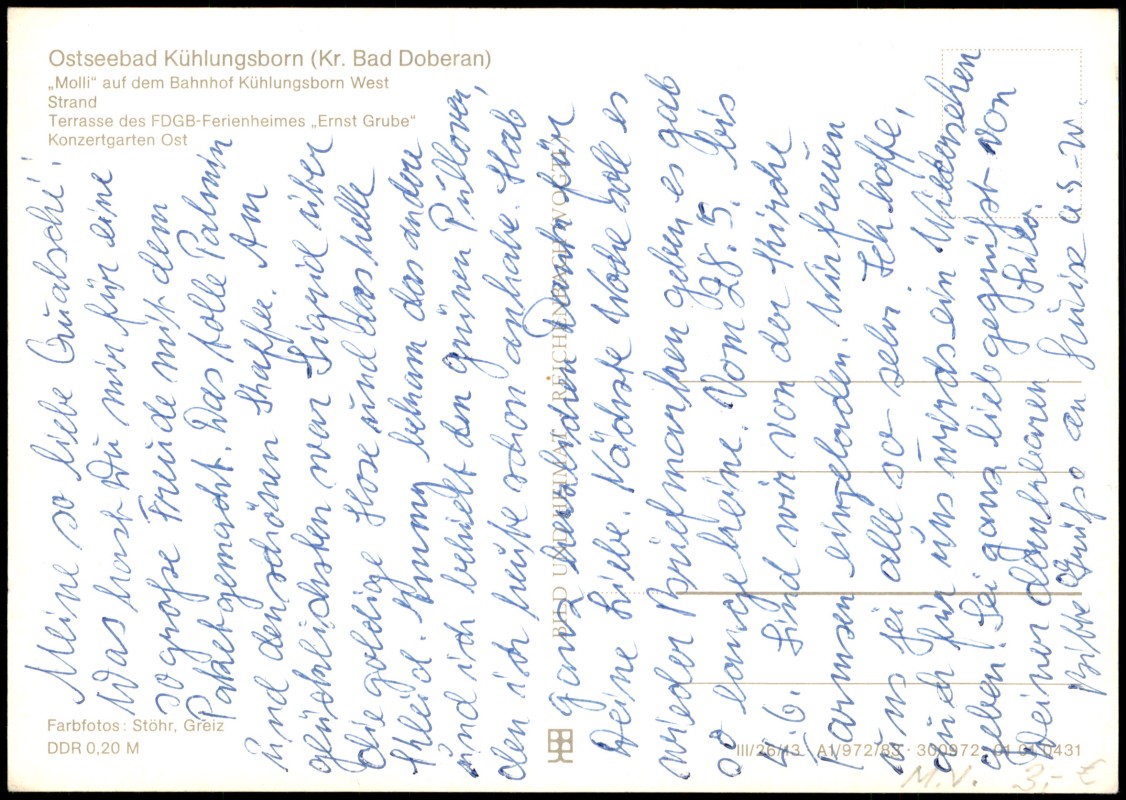 Ostseebad Kühlungsborn (Kr. Bad Doberan)
„Molli“ auf dem Bahnhof Kühlungsborn West
Strand
Terrasse des FDGB-Ferienheimes „Ernst Grube“
Konzertgarten Ost
Meine so liebe Qualsche!
Was hast Du mir für eine
so große Freude mit dem
Paket gemacht. Das tolle Palmin
und den schönen Kaffee. Am
glücklichsten war Sigrid über
die goldige Hose und das helle
Kleid. bekam das andere
und ich behielt den grünen Pullover,
den ich heute schon anhabe. Hab
ganz herzlichen Dank für
Deine Liebe. Nächste Woche soll es
wieder Briefmarken geben es gab
so lange keine. Vom 28.5. bis
4.6. sind wir von der Kirche
eingeladen. Wir freuen
uns alle so sehr. Ich hoffe,
auch für uns wirds ein Wiedersehen
geben. Sei ganz lieb gegrüßt von
Deiner dankbaren
Bitte Grüße an Luise
BILD UND HEIMAT REICHENBACH (VOGTL)
Farbfotos: Stöhr, Greiz
DDR 0,20 M
III/26/13 A1/972/83 300972 01 01 0431
M.V. 3,- €